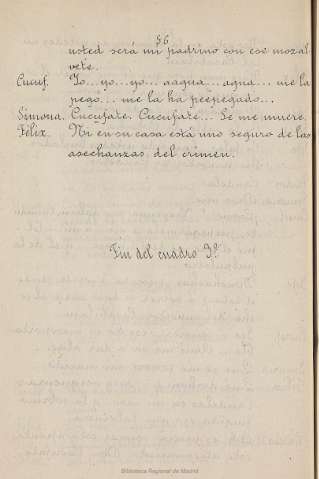 56
usted será mi padrino con ese mozal
vete.
Cucuf. Yo... yo... yo... aagua... agua... me la
pegó... me la ha peepegado...
Simona. Cucufate. Cucufate... Se me muere.
Felix. Ni en su casa está uno seguro de las
asechanzas del crimen.
Fin del cuadro 3º
Biblioteca Regional de Madrid